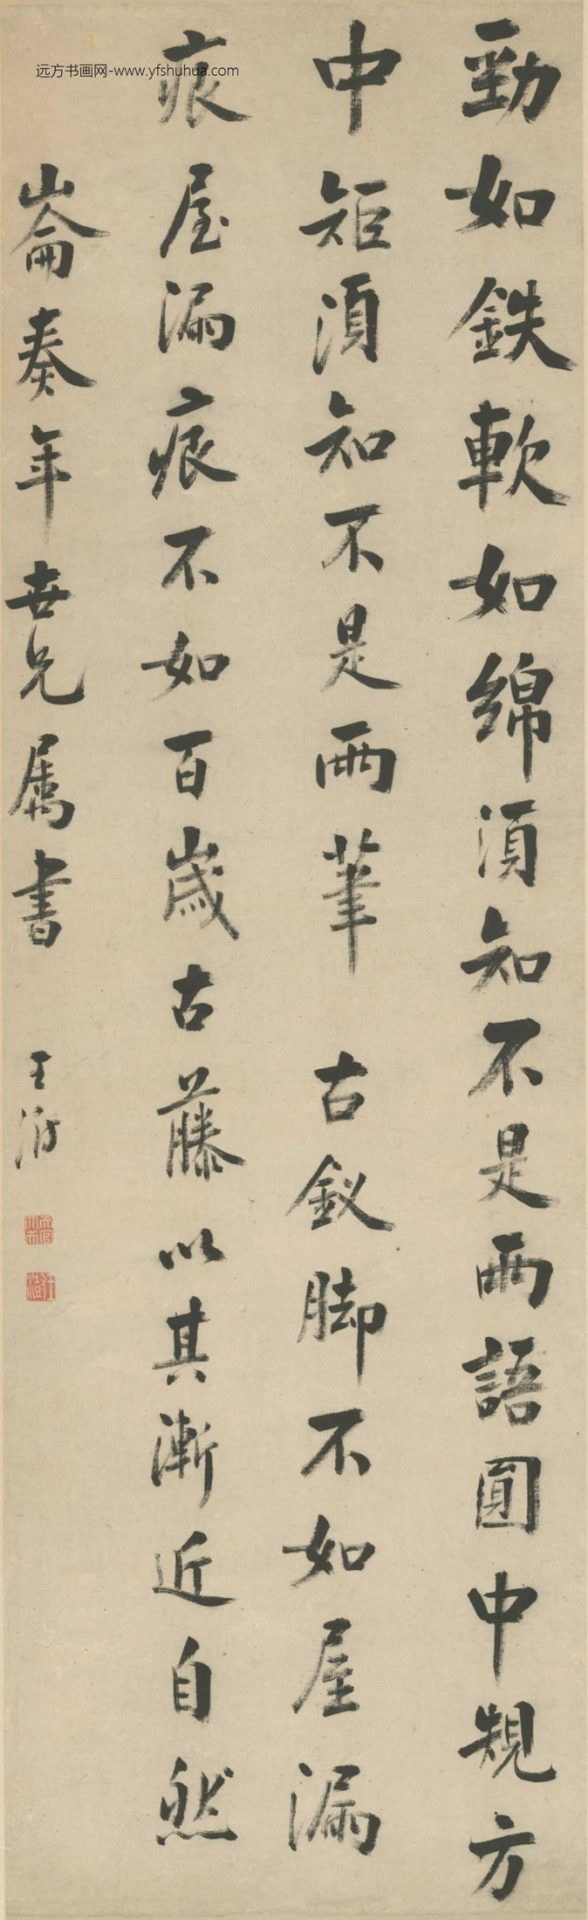 远方书画网-www.yfshuhua.com
勁如鉄軟如綿須知不是兩語圓中規方
中矩須知不是兩筆 古釵脚不如屋漏
痕屋漏痕不如百歲古藤以其漸近自然
崙奏年世兄属書 王澍